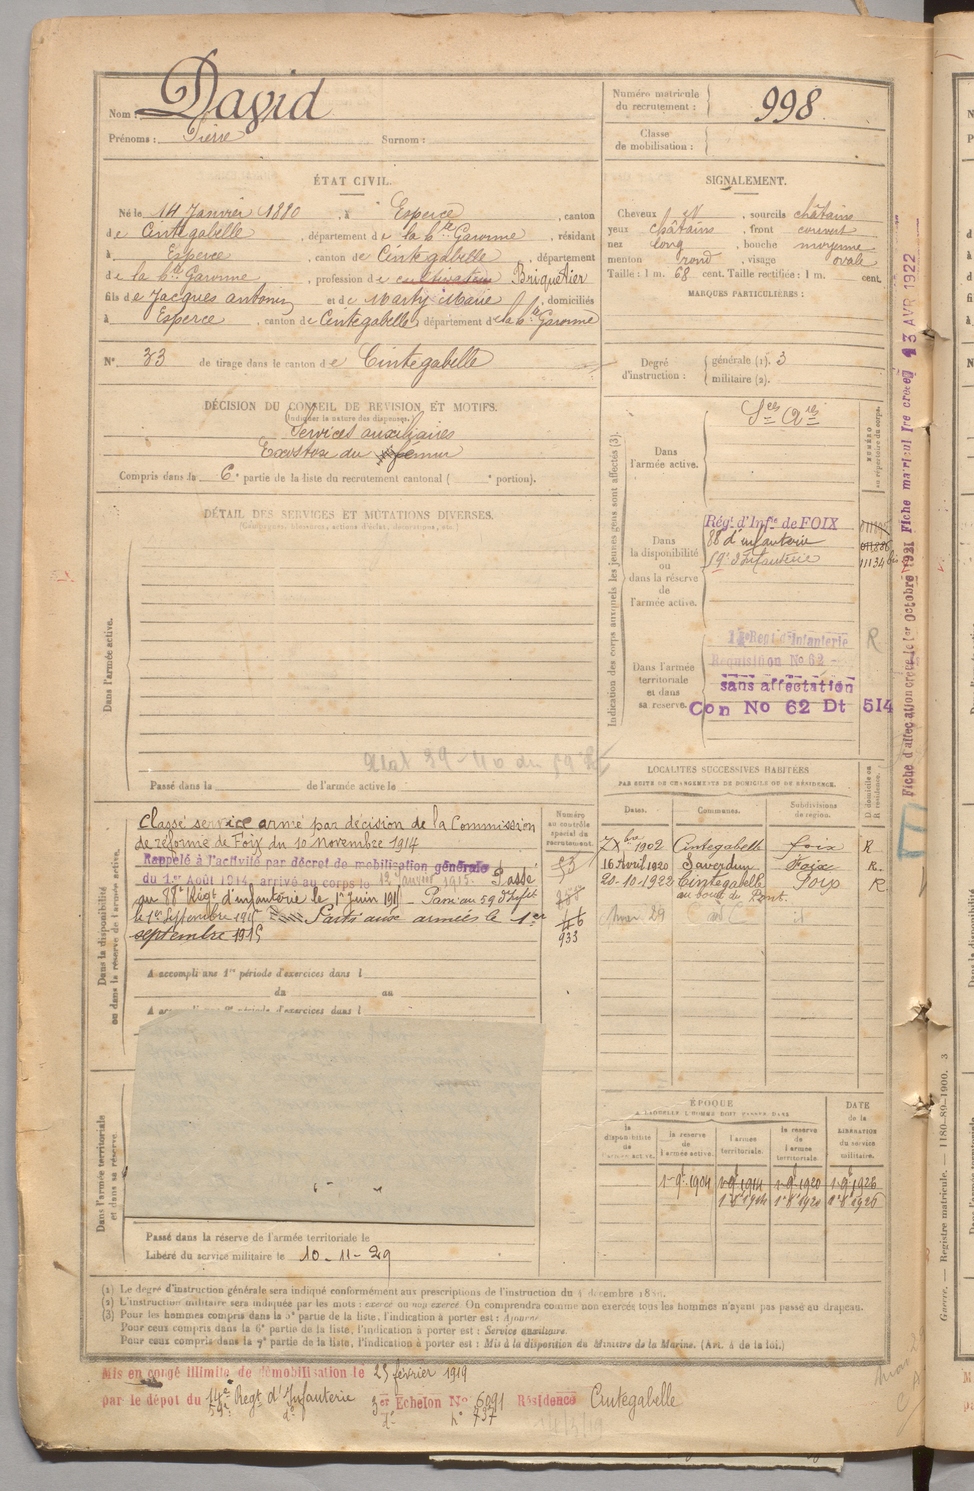 Nom : David
Prénoms : Pierre Surnom :
Numéro matricule du recrutement : 998
Classe de mobilisation :
ÉTAT CIVIL.
Né le 14 Janvier 1880, à Esperce, canton
de Cintegabelle, département de la Hte Garonne, résidant
à Esperce, canton de Cintegabelle, département
de la Hte Garonne, profession de cultivateur Briquetier
fils de Jacques antonin et de Marty Marie, domiciliés
à Esperce, canton de Cintegabelle, département de la Hte Garonne
N° 33 de tirage dans le canton de Cintegabelle
SIGNALEMENT.
Cheveux , sourcils châtains
yeux châtains, front couvert
nez long, bouche moyenne
menton rond, visage ovale
Taille : 1 m. 68 cent. Taille rectifiée : 1 m. cent.
MARQUES PARTICULIÈRES :
Degré d'instruction : générale (1). 3
militaire (2).
DÉCISION DU CONSEIL DE REVISION ET MOTIFS.
(Indiquer la nature des dispenses)
Services auxiliaires
Exostose du fémur
Compris dans la 6e partie de la liste du recrutement cantonal ( e portion).
DÉTAIL DES SERVICES ET MUTATIONS DIVERSES.
(Campagnes, blessures, actions d'éclat, décorations, etc.)
Dans l'armée active.
Passé dans la de l'armée active le
Indication des corps auxquels les jeunes gens sont affectés (3).
Dans l'armée active.
NUMÉRO au répertoire du corps.
Dans la disponibilité ou dans la réserve de l'armée active.
Régt d'Infie de FOIX
88 d'infanterie
59e d'Infanterie 11134 bis
Dans l'armée territoriale et dans sa réserve.
Regt d'Infanterie
Réquisition No 62
sans affectation
Con No 62 Dt 514
R
Fiche d'affectation créée le 1er Octobre 1921 Fiche matricul 1re créée 13 AVR 1922
LOCALITÉS SUCCESSIVES HABITÉES
PAR SUITE DE CHANGEMENTS DE DOMICILE OU DE RÉSIDENCE.
Dates. Communes. Subdivisions de région. D domicile ou R résidence.
Xbre 1902 Cintegabelle Foix R
16 Avril 1920 Saverdun Foix R.
20-10-1922 Cintegabelle Foix R
au bout du Pont.
Dans la disponibilité ou dans la réserve de l'armée active.
Numéro au contrôle spécial du recrutement.
Classé service armé par décision de la Commission
de réforme de Foix du 10 novembre 1914
Rappelé à l'activité par décret de mobilisation générale
du 1er Août 1914, arrivé au corps le 12 Janvier 1915. Passé
au 88e Régt d'infanterie le 1er Juin 1915 - Passé au 59 d'Infie
le 1er Septembre 1915 Parti aux armées le 1er
septembre 1915
933
A accompli une 1re période d'exercices dans l
du au
A accompli une 2e période d'exercices dans l
Dans l'armée territoriale et dans sa réserve.
Passé dans la réserve de l'armée territoriale le
Libéré du service militaire le 10-11-29
ÉPOQUE
A LAQUELLE L'HOMME DOIT PASSER DANS
la disponibilité de l'armée active. la réserve de l'armée active. l'armée territoriale. la réserve de l'armée territoriale. DATE de la LIBÉRATION du service militaire.
1-9bre 1904 1-9bre 1914 1-9bre 1920 1-9bre 1926
(1) Le degré d'instruction générale sera indiqué conformément aux prescriptions de l'instruction du 4 décembre 1889.
(2) L'instruction militaire sera indiquée par les mots : exercé ou non exercé. On comprendra comme non exercés tous les hommes n'ayant pas passé au drapeau.
(3) Pour les hommes compris dans la 5e partie de la liste, l'indication à porter est : Ajourné.
Pour ceux compris dans la 6e partie de la liste, l'indication à porter est : Service auxiliaire.
Pour ceux compris dans la 7e partie de la liste, l'indication à porter est : Mis à la disposition du Ministre de la Marine. (Art. 4 de la loi.)
Mis en congé illimité de démobilisation le 25 février 1919
par le dépôt du 14e Regt d'Infanterie 3er Echelon No 6091 Résidence Cintegabelle
59e do do no 737
Guerre. — Registre matricule. — 1180-89-1900. 3